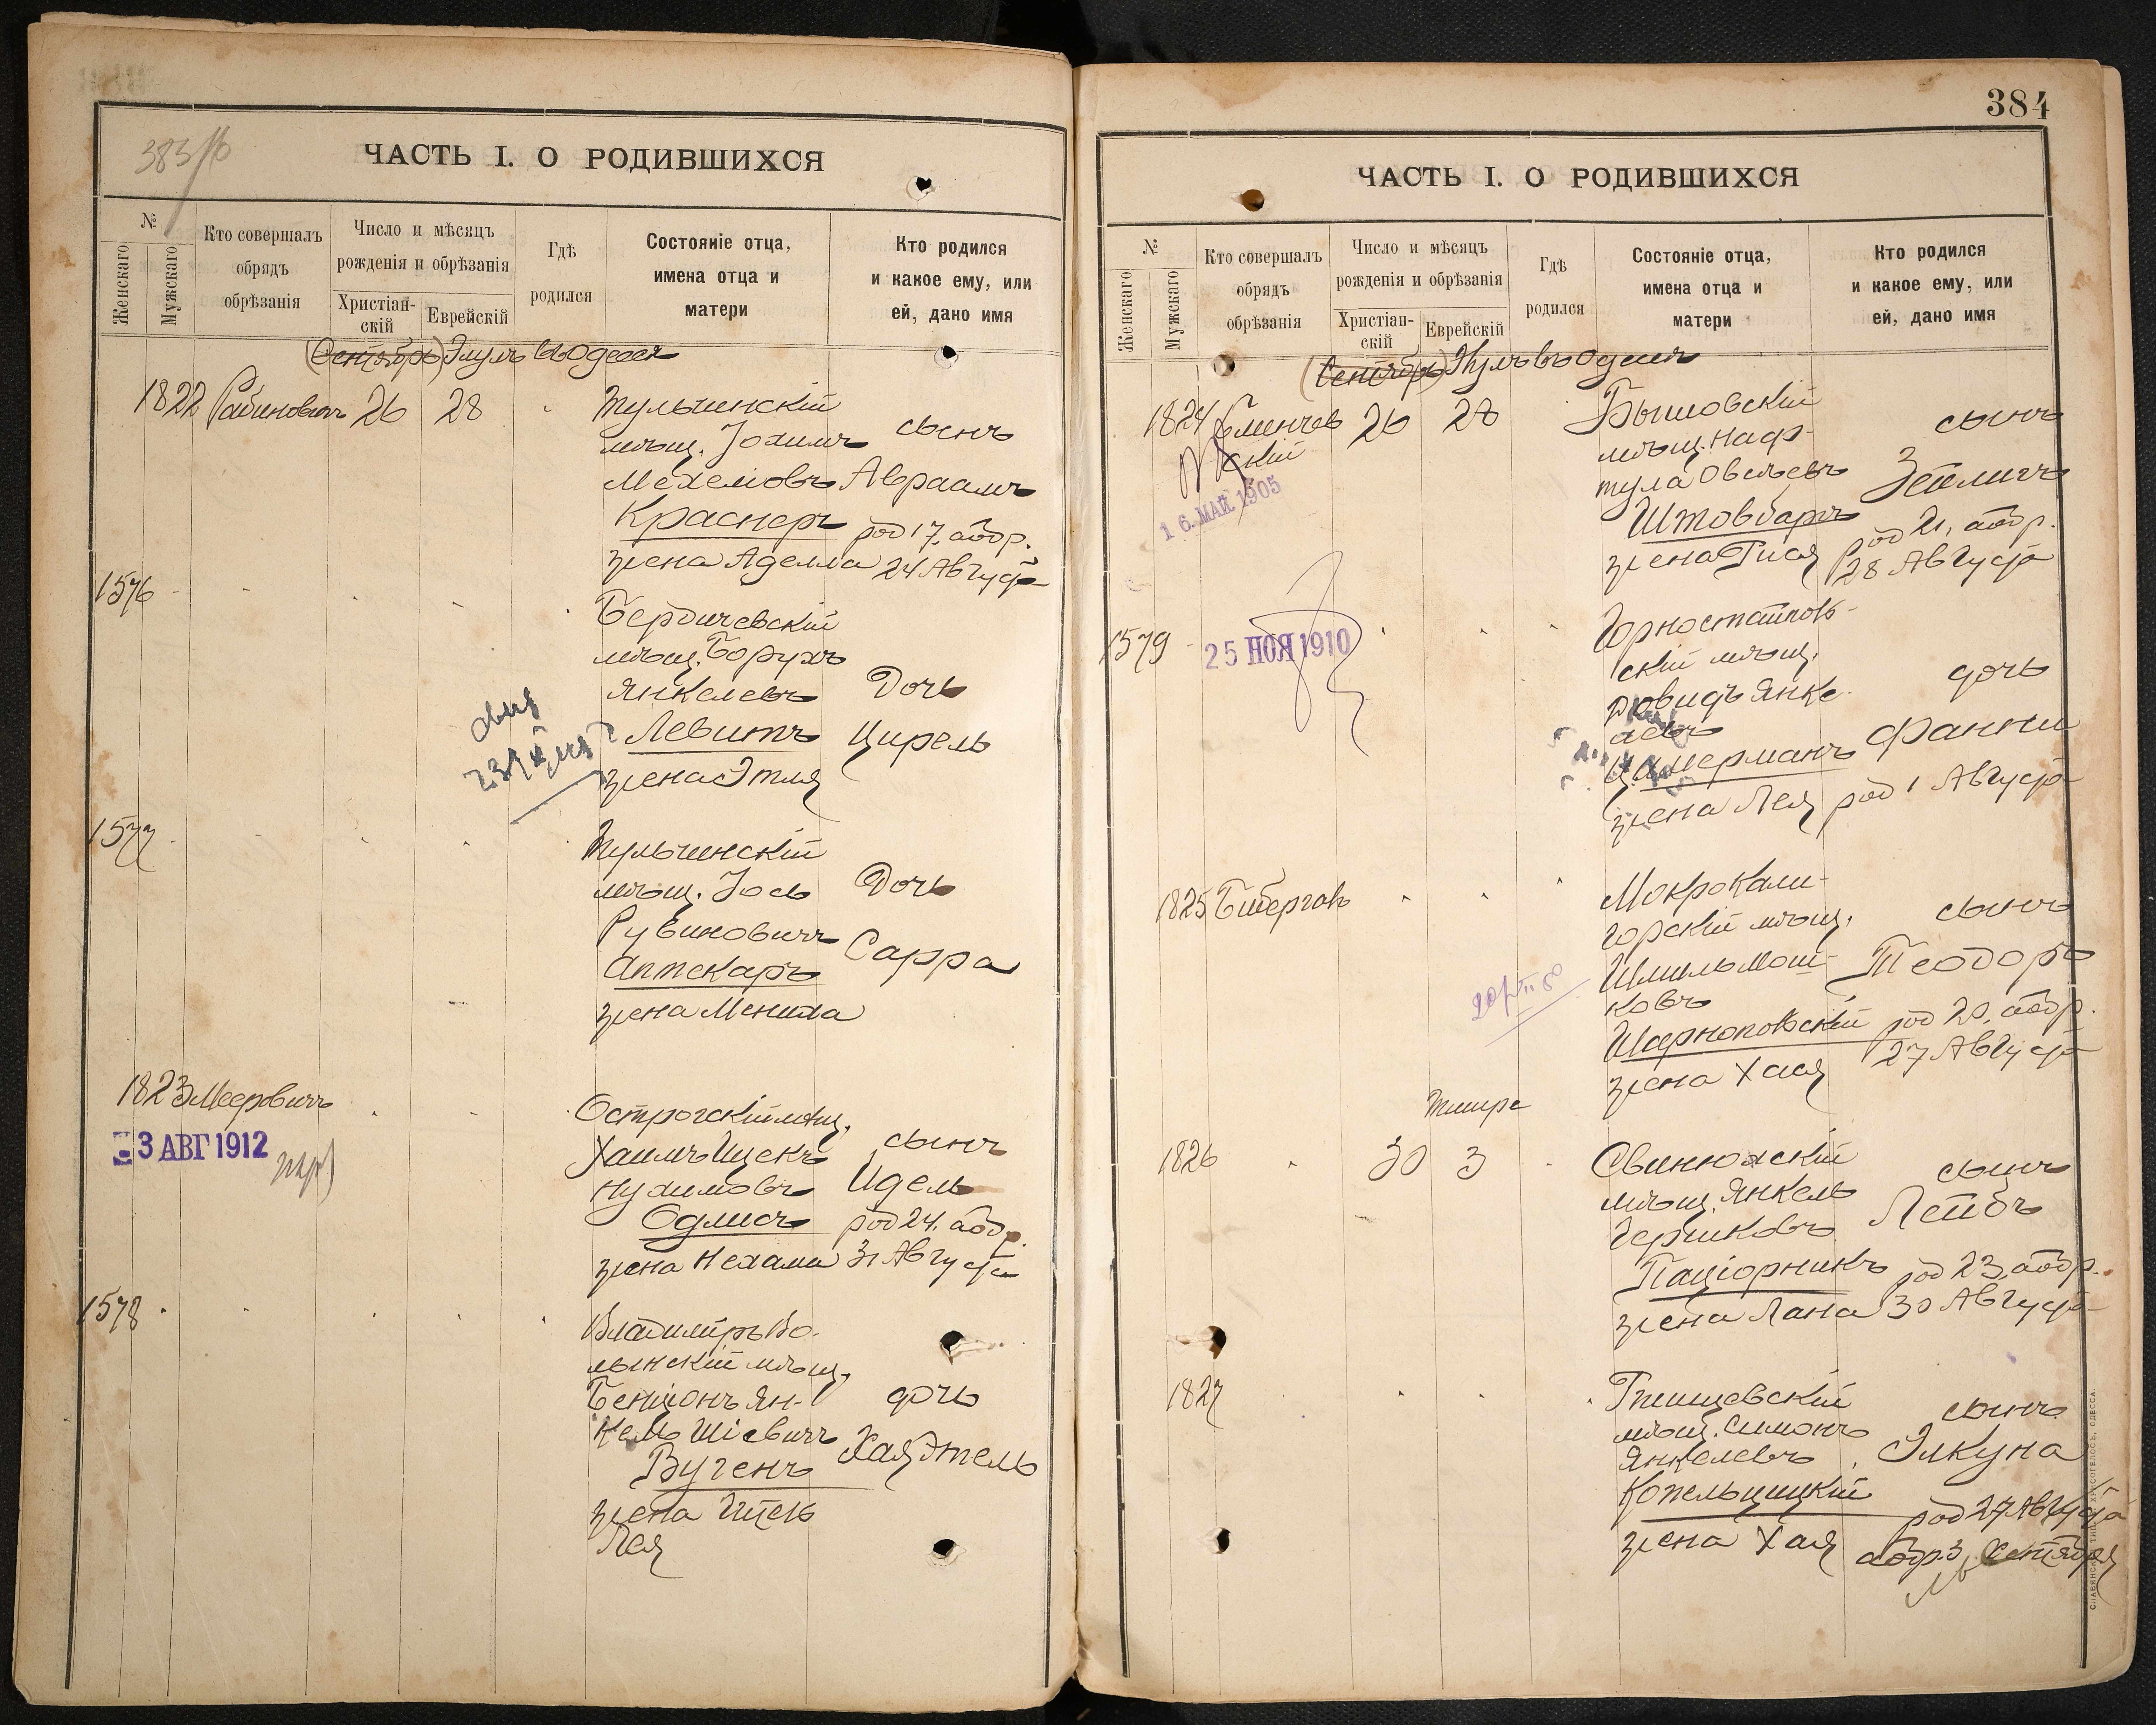 383 об
ЧАСТЬ I. О РОДИВШИХСЯ
№
Женскаго
Мужскаго
Кто совершалъ
обрядъ
обрѣзанія
Число и мѣсяцъ
рожденія и обрѣзанія
Христіан-
скій
Еврейскій
Гдѣ
родился
Состояніе отца,
имена отца и
матери
Кто родился
и какое ему, или
ей, дано имя
(Сентябрь) Элулъ въ Одессѣ
1822 Рабиновичъ 26 28
Тульчинскій
мѣщ. Іохимъ
Мехелювъ
Краснеръ
жена Аделла
сынъ
Авраамъ
род 17, аобр.
24 Августа
1576
Бердичевскій
мѣщ. Борухъ
Янкелевъ
Левитъ
жена Этля
Дочь
Цирель
1577
Тульчинскій
мѣщ. Іось
Рувиновичъ
Аптекарь
жена Менила
Дочь
Сарра
1823 Мееровичъ
3 АВГ 1912
Острогскій мѣщ.
Хаимъ Ицекъ
Нухимовъ
Одлисъ
жена Нехама
сынъ
Идель
род 24. аобр.
31 Августа
1578
Владиміръ Во-
лынскій мѣщ.
Бенціонъ Ян-
кель Шіевичъ
Вугенъ
жена
Лея
дочь
Хая Этель
384
ЧАСТЬ I. О РОДИВШИХСЯ
№
Женскаго
Мужскаго
Кто совершалъ
обрядъ
обрѣзанія
Число и мѣсяцъ
рожденія и обрѣзанія
Христіан-
скій
Еврейскій
Гдѣ
родился
Состояніе отца,
имена отца и
матери
Кто родился
и какое ему, или
ей, дано имя
(Сентябрь) Элулъ въ Одессѣ
1824 26 28
скій
16. МАЙ 1905
Бышовскій
мѣщ. Наф-
тула Овсѣевъ
Штовбаръ
жена Гися
сынъ
Зейлигъ
род 21, аобр.
28 Августа
1579
25 НОЯ 1910
Горностайпов-
скій мѣщ.
Довидъ Янке-
левъ
Цимерманъ
жена Лея
дочь
Фанни
род 1 Августа
1825 Бибергалъ
Мокрокали-
горскій мѣщ.
Шмиль Мош-
ковъ
Шарнопольскій
жена Хая
сынъ
Теодоръ
род 20, аобр.
27 Августа
Тишре
1826 30 3
Свинюхскій
мѣщ. Янкель
Гершковъ
Паціорникъ
жена Лана
сынъ
Лейбъ
род 23, аобр.
30 Августа
1827
мѣщ. Симонъ
Янкелевъ
Копельцицкій
жена Хая
сынъ
Элкуна
род 27 Августа
аобр. 3 Сентября